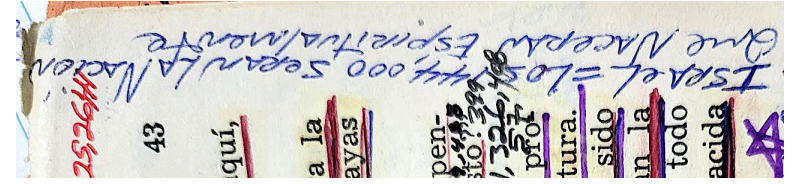 ISRAEL = LOS 144,000 SERAN LA NACION
QUE NACERAN ESPIRITUALMENTE
43
quí,
a la
ayas
pen-
pro
tura.
sido
n la
todo
acida